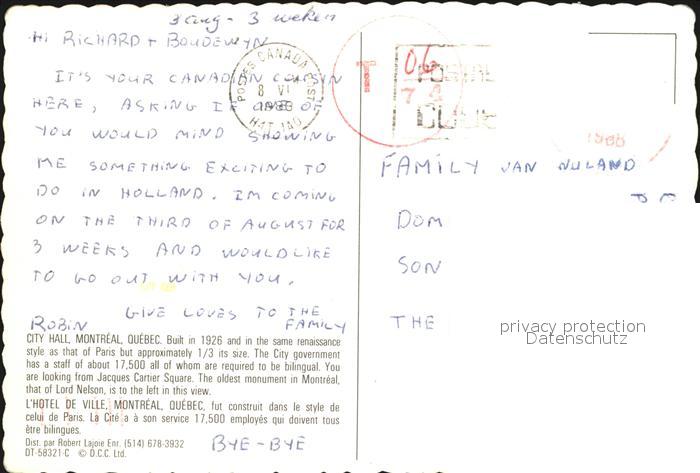 3 aug - 3 weken
Hi RICHARD + BOUDEWYN
IT'S YOUR CANADIAN COUSIN
HERE, ASKING IF ONE OF
YOU WOULD MIND SHOWING
ME SOMETHING EXCITING TO
DO IN HOLLAND. IM COMING
ON THE THIRD OF AUGUST FOR
3 WEEKS AND WOULD LIKE
TO GO OUT WITH YOU.
GIVE LOVES TO THE
FAMILY
ROBIN
CITY HALL, MONTRÉAL, QUÉBEC. Built in 1926 and in the same renaissance
style as that of Paris but approximately 1/3 its size. The City government
has a staff of about 17,500 all of whom are required to be bilingual. You
are looking from Jacques Cartier Square. The oldest monument in Montréal,
that of Lord Nelson, is to the left in this view.
L'HOTEL DE VILLE, MONTRÉAL, QUÉBEC, fut construit dans le style de
celui de Paris. La Cité a à son service 17,500 employés qui doivent tous
être bilingues.
Dist. par Robert Lajoie Enr. (514) 678-3932
DT-58321-C © D.C.C. Ltd.
BYE-BYE
POSTES CANADA POST
8 VI
T
06
74
FAMILY VAN NULAND
DOM
SON
THE
privacy protection
Datenschutz